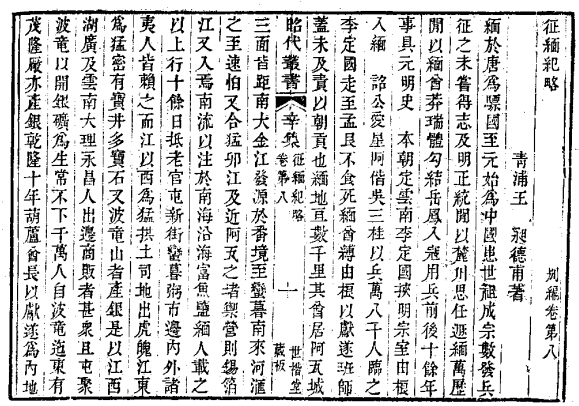 征緬紀略 別編卷第八
青浦王 昶德甫著
緬於唐爲驃國至元始爲中國患世祖成宗數發兵
征之未嘗得志及明正統間以麓川思任遯緬萬歷
間以緬酋莽瑞體勾結岳鳳入寇用兵前後十餘年
事具元明史 本朝定雲南李定國挾明宗室由榔
入緬 詔公愛星阿偕吳三桂以兵萬八千人臨之
李定國走至孟艮不食死緬酋縛由榔以獻遂班師
蓋未及責以朝貢也緬地亙數千里其酋居阿瓦城
昭代叢書 辛集 征緬紀略 卷第八 一 世楷堂 藏板
三面皆距南大金江發源於番境至蠻暮南來河滙
之至速怕又合猛卯江及近阿瓦之者禊營則錫箔
江又入焉南流以注於南海沿海富魚鹽緬人載之
以上行十餘日抵老官屯新街蠻暮粥市邊內外諸
夷人皆賴之而江以西爲猛拱土司地出虎魄江東
爲猛密有寶井多寶石又波竜山者產銀是以江西
湖廣及雲南大理永昌人出邊商販者甚衆且屯聚
波竜以開銀礦爲生常不下千萬人自波竜迤東有
茂隆厰亦產銀乾隆十年葫蘆酋長以獻遂爲內地